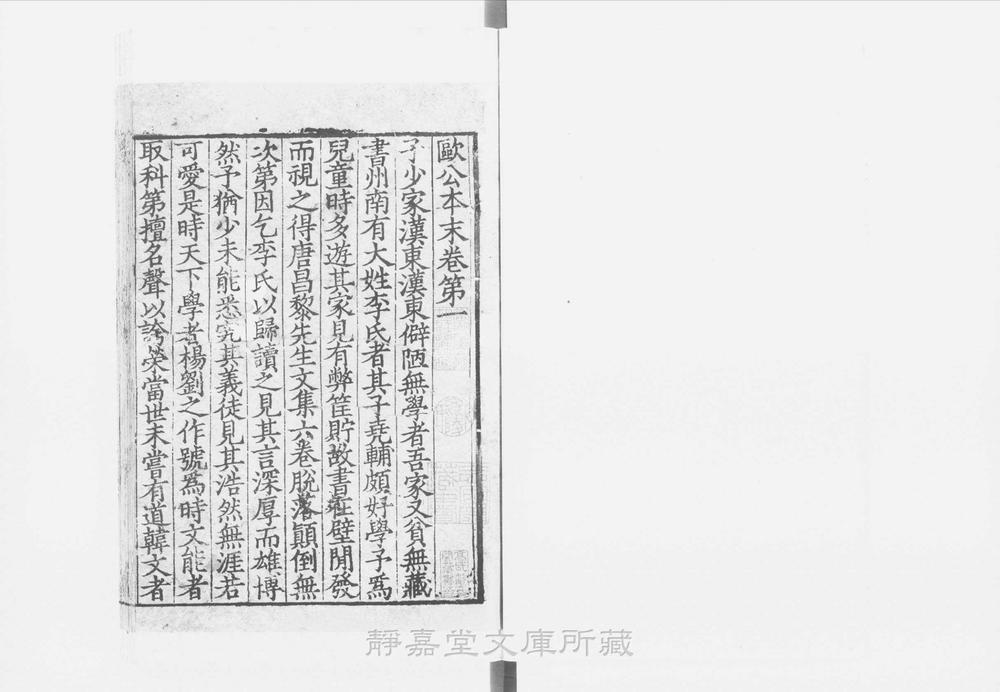 歐公本末卷第一
予少家漢東漢東僻陋無學者吾家又貧無藏
書州南有大姓李氏者其子堯輔頗好學予爲
兒童時多遊其家見有弊筐貯故書在壁間發
而視之得唐昌黎先生文集六卷脫落顚倒無
次第因乞李氏以歸讀之見其言深厚而雄博
然予猶少未能悉究其義徒見其浩然無涯若
可愛是時天下學者楊劉之作號爲時文能者
取科第擅名聲以誇榮當世未嘗有道韓文者
靜嘉堂文庫所藏